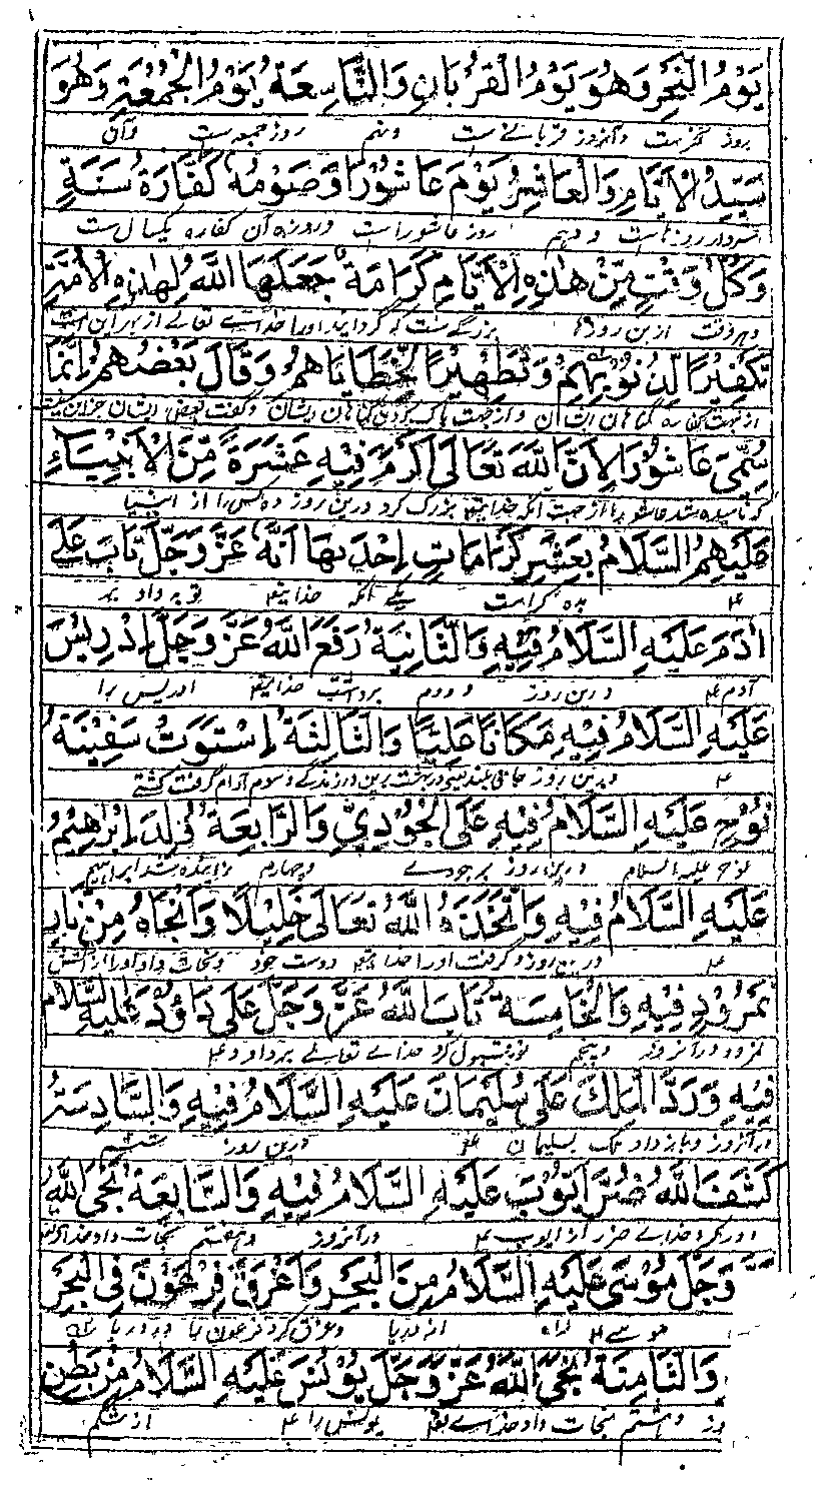 يَوْمُ النَّحْرِ وَهُوَ يَوْمُ الْقُرْبَانِ وَالتَّاسِعَةُ يَوْمُ الْجُمُعَةِ وَهُوَ
روز نحرست وآنروز قربانے ست ونهم روز جمعه ست وآن
سَيِّدُ الْاَيَّامِ وَالْعَاشِرُ يَوْمَ عَاشُوْرَا وَصَوْمُهٗ كَفَّارَةُ سَنَةٍ
سردار روزهاست ودهم روز عاشوراست وروزه آن کفاره یکسال ست
وَكُلُّ وَقْتٍ مِّنْ هٰذِهِ الْاَيَّامِ كَرَامَةٌ جَعَلَهَا اللّٰهُ لِهٰذِهِ الْاُمَّةِ
وهر وقت ازین روزها بزرگے ست که گردانید اورا خداے تعالے از بهر این امت
تَكْفِيْرًا لِّذُنُوْبِهِمْ وَتَطْهِيْرًا لِّخَطَايَاهُمْ وَقَالَ بَعْضُهُمْ اِنَّمَا
از جهت کفاره گناهان ایشان واز جهت پاک کردن گناهان ایشان وگفت بعض ایشان جز این نیست
سُمِّيَ عَاشُوْرَا لِاَنَّ اللّٰهَ تَعَالٰى اَكْرَمَ فِيْهِ عَشَرَةً مِّنَ الْاَنْبِيَاءِ
که نامیده شد عاشورا از جهت آنکه خدایتع بزرگ کرد درین روز ده کس را از انبیا
عَلَيْهِمُ السَّلَامُ بِعَشْرِ كَرَامَاتٍ اِحْدٰىهَا اَنَّهٗ عَزَّ وَجَلَّ تَابَ عَلٰى
ع بده کرامت یکے آنکه خدایتع توبه داد بر
اٰدَمَ عَلَيْهِ السَّلَامُ فِيْهِ وَالثَّانِيَةُ رَفَعَ اللّٰهُ عَزَّ وَجَلَّ اِدْرِيْسَ
آدم ع درین روز ودوم برداشت خدایتع ادریس را
عَلَيْهِ السَّلَامُ فِيْهِ مَكَانًا عَلِيًّا وَالثَّالِثَةُ اِسْتَوَتْ سَفِيْنَةُ
ع درین روز وسوم آرام گرفت کشتے
نُوْحٍ عَلَيْهِ السَّلَامُ فِيْهِ عَلَى الْجُوْدِيِّ وَالرَّابِعَةُ وُلِدَ اِبْرٰهِيْمُ
نوح علیه السلام درین روز بر جودے وچهارم زائیده شد ابراهیم
عَلَيْهِ السَّلَامُ فِيْهِ وَاتَّخَذَهُ اللّٰهُ تَعَالٰى خَلِيْلًا وَاَنْجَاهُ مِنْ نَّارِ
ع درین روز وگرفت اورا خدایتع دوست خود ونجات داد اورا از آتش
نَمْرُوْدَ فِيْهِ وَالْخَامِسَةُ تَابَ اللّٰهُ عَزَّ وَجَلَّ عَلٰى دَاوٗدَ عَلَيْهِ السَّلَام
نمرود در آنروز وپنجم توبه قبول کرد خداے تعالے بر داود ع
فِيْهِ وَرَدَّ الْمُلْكَ عَلٰى سُلَيْمَانَ عَلَيْهِ السَّلَامُ فِيْهِ وَالسَّادِسَةُ
در آنروز وباز داد ملک بسلیمان ع درین روز ششم
كَشَفَ اللّٰهُ ضُرَّ اَيُّوْبَ عَلَيْهِ السَّلَامُ فِيْهِ وَالسَّابِعَةُ نَجَّى اللّٰهُ
دور کرد خداے ضرر از ایوب ع در آنروز وهفتم نجات داد خداے
وَجَلَّ مُوْسٰى عَلَيْهِ السَّلَامُ مِنَ الْبَحْرِ وَاَغْرَقَ فِرْعَوْنَ فِي الْبَحْرِ
موسے ع را از دریا وغرق کرد فرعون را در دریا
وَالثَّامِنَةُ نَجَّى اللّٰهُ عَزَّ وَجَلَّ يُوْنُسَ عَلَيْهِ السَّلَامُ مِنْ بَطْنِ
وهشتم نجات داد خداے تع یونس را ع از شکم